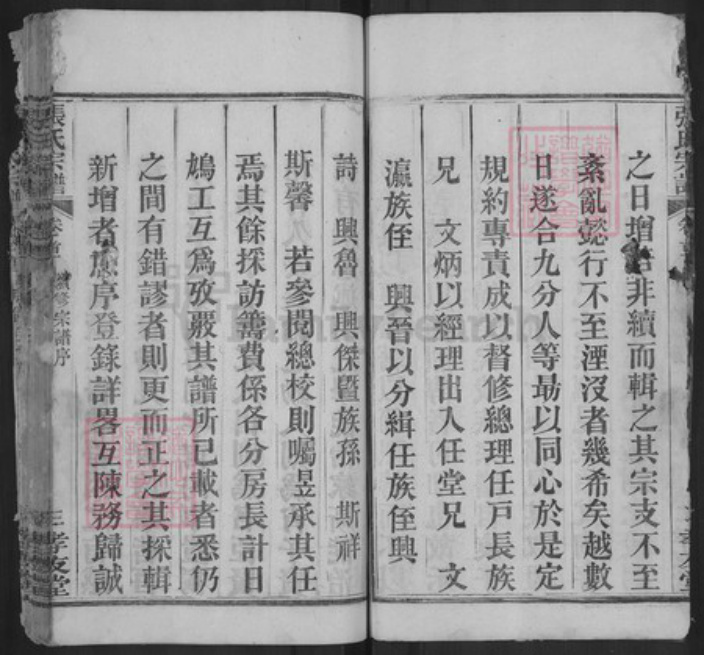 之日增 非續而輯之其宗支不至
紊亂懿行不至湮沒者幾希矣越數
日遂合九分人等勗以同心於是定
規約專責成以督修總理任戶長族
兄 文炳以經理出入任堂兄 文
瀛族侄 興晉以分緝任族侄興
詩 興魯 興傑暨族孫 斯祥
斯馨 若參閱總校則囑昱承其任
焉其餘採訪籌費係各分房長計日
鳩工互爲攷覈其譜所已載者悉仍
之間有錯謬者則更而正之其採輯
新增者 序登錄詳畧互陳務歸誠
張氏宗譜 卷首 續修宗譜序 三 孝友堂